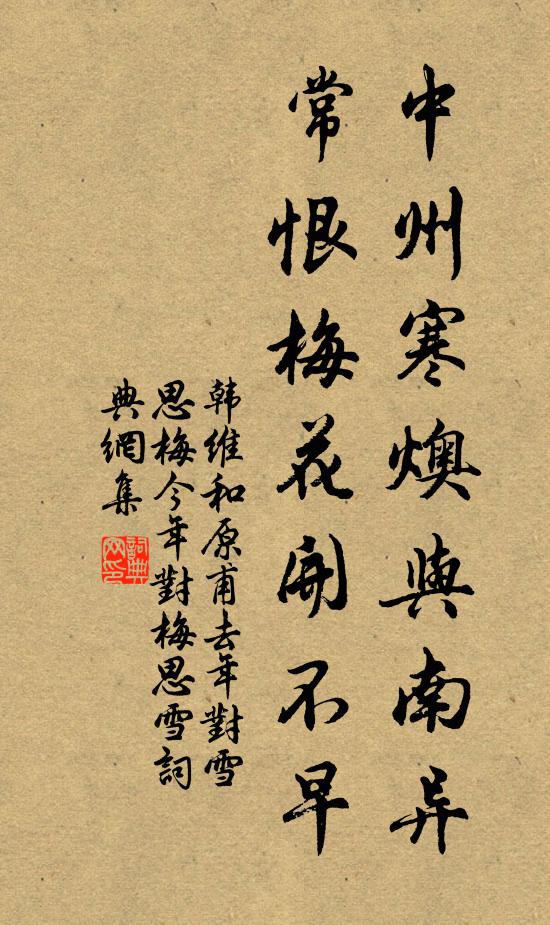 中州寒燠與南异
常恨梅花開不早
韩維和原甫去年對雪
思梅今年對梅思雪詞
典網集
詞典
网印